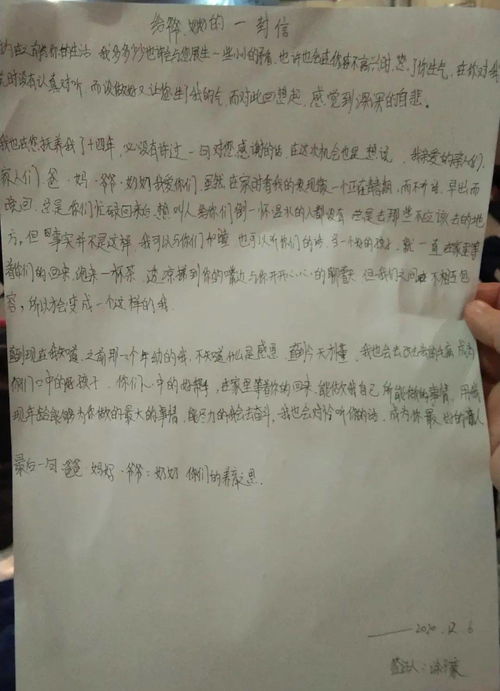 给爷,奶的一封信
的生活 我多多少少也许会与您发生一些小小的矛盾,也许也会在你不高兴时,惹了你生气,在你对我
时没有认真对听,而没做好又让您生了我的气,而对此回想起,感觉到深深的自卑。
我也在您抚养我了十四年,必没有许过一句对您感谢的话 在这次机会也是想说 我亲爱的家人们
家人们,爸·妈·爷·奶奶我爱你们,虽然在家时看我的表现像一个正在 期,而不 早出而
晚回,总是你们忙碌回来后,想叫人给你们倒一杯温水的人都没有 总是去那些不应该去的地
方,但事实并不是这样,我可以与你们 也可以听你们的话 一个好的孩子,就一直在家里等
着你们的回来,泡来一杯茶 边凉拂到你的嘴边与你开开心心的聊聊天 但我们之间 不相互包
容,所以才会变成一个这样的我。
到现在我知道,之前那一个年幼的我,不知道什么是感恩 直到今天才懂,我也会去 成为
你们口中的好孩子,你们心中的好帮手,在家里等着你的回来,能做就做自己所能做的事情,用我
现年龄能够为你做的最大的事情,能尽力的我会去奋斗,我也会对 听你的话,成为你最 的 人
最后一句·爸爸·妈妈·爷爷·奶奶 你们的养育之恩.
——2020.12.6
签认人: